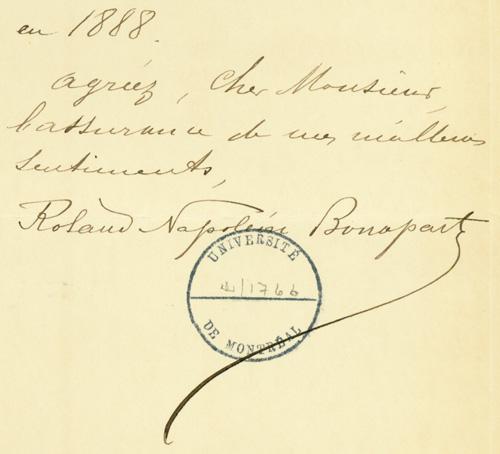 en 1888.
agréez, Cher Monsieur,
l'assurance de mes meilleurs
sentiments,
Roland Napoléon Bonaparte
UNIVERSITÉ
1766
DE MONTRÉAL